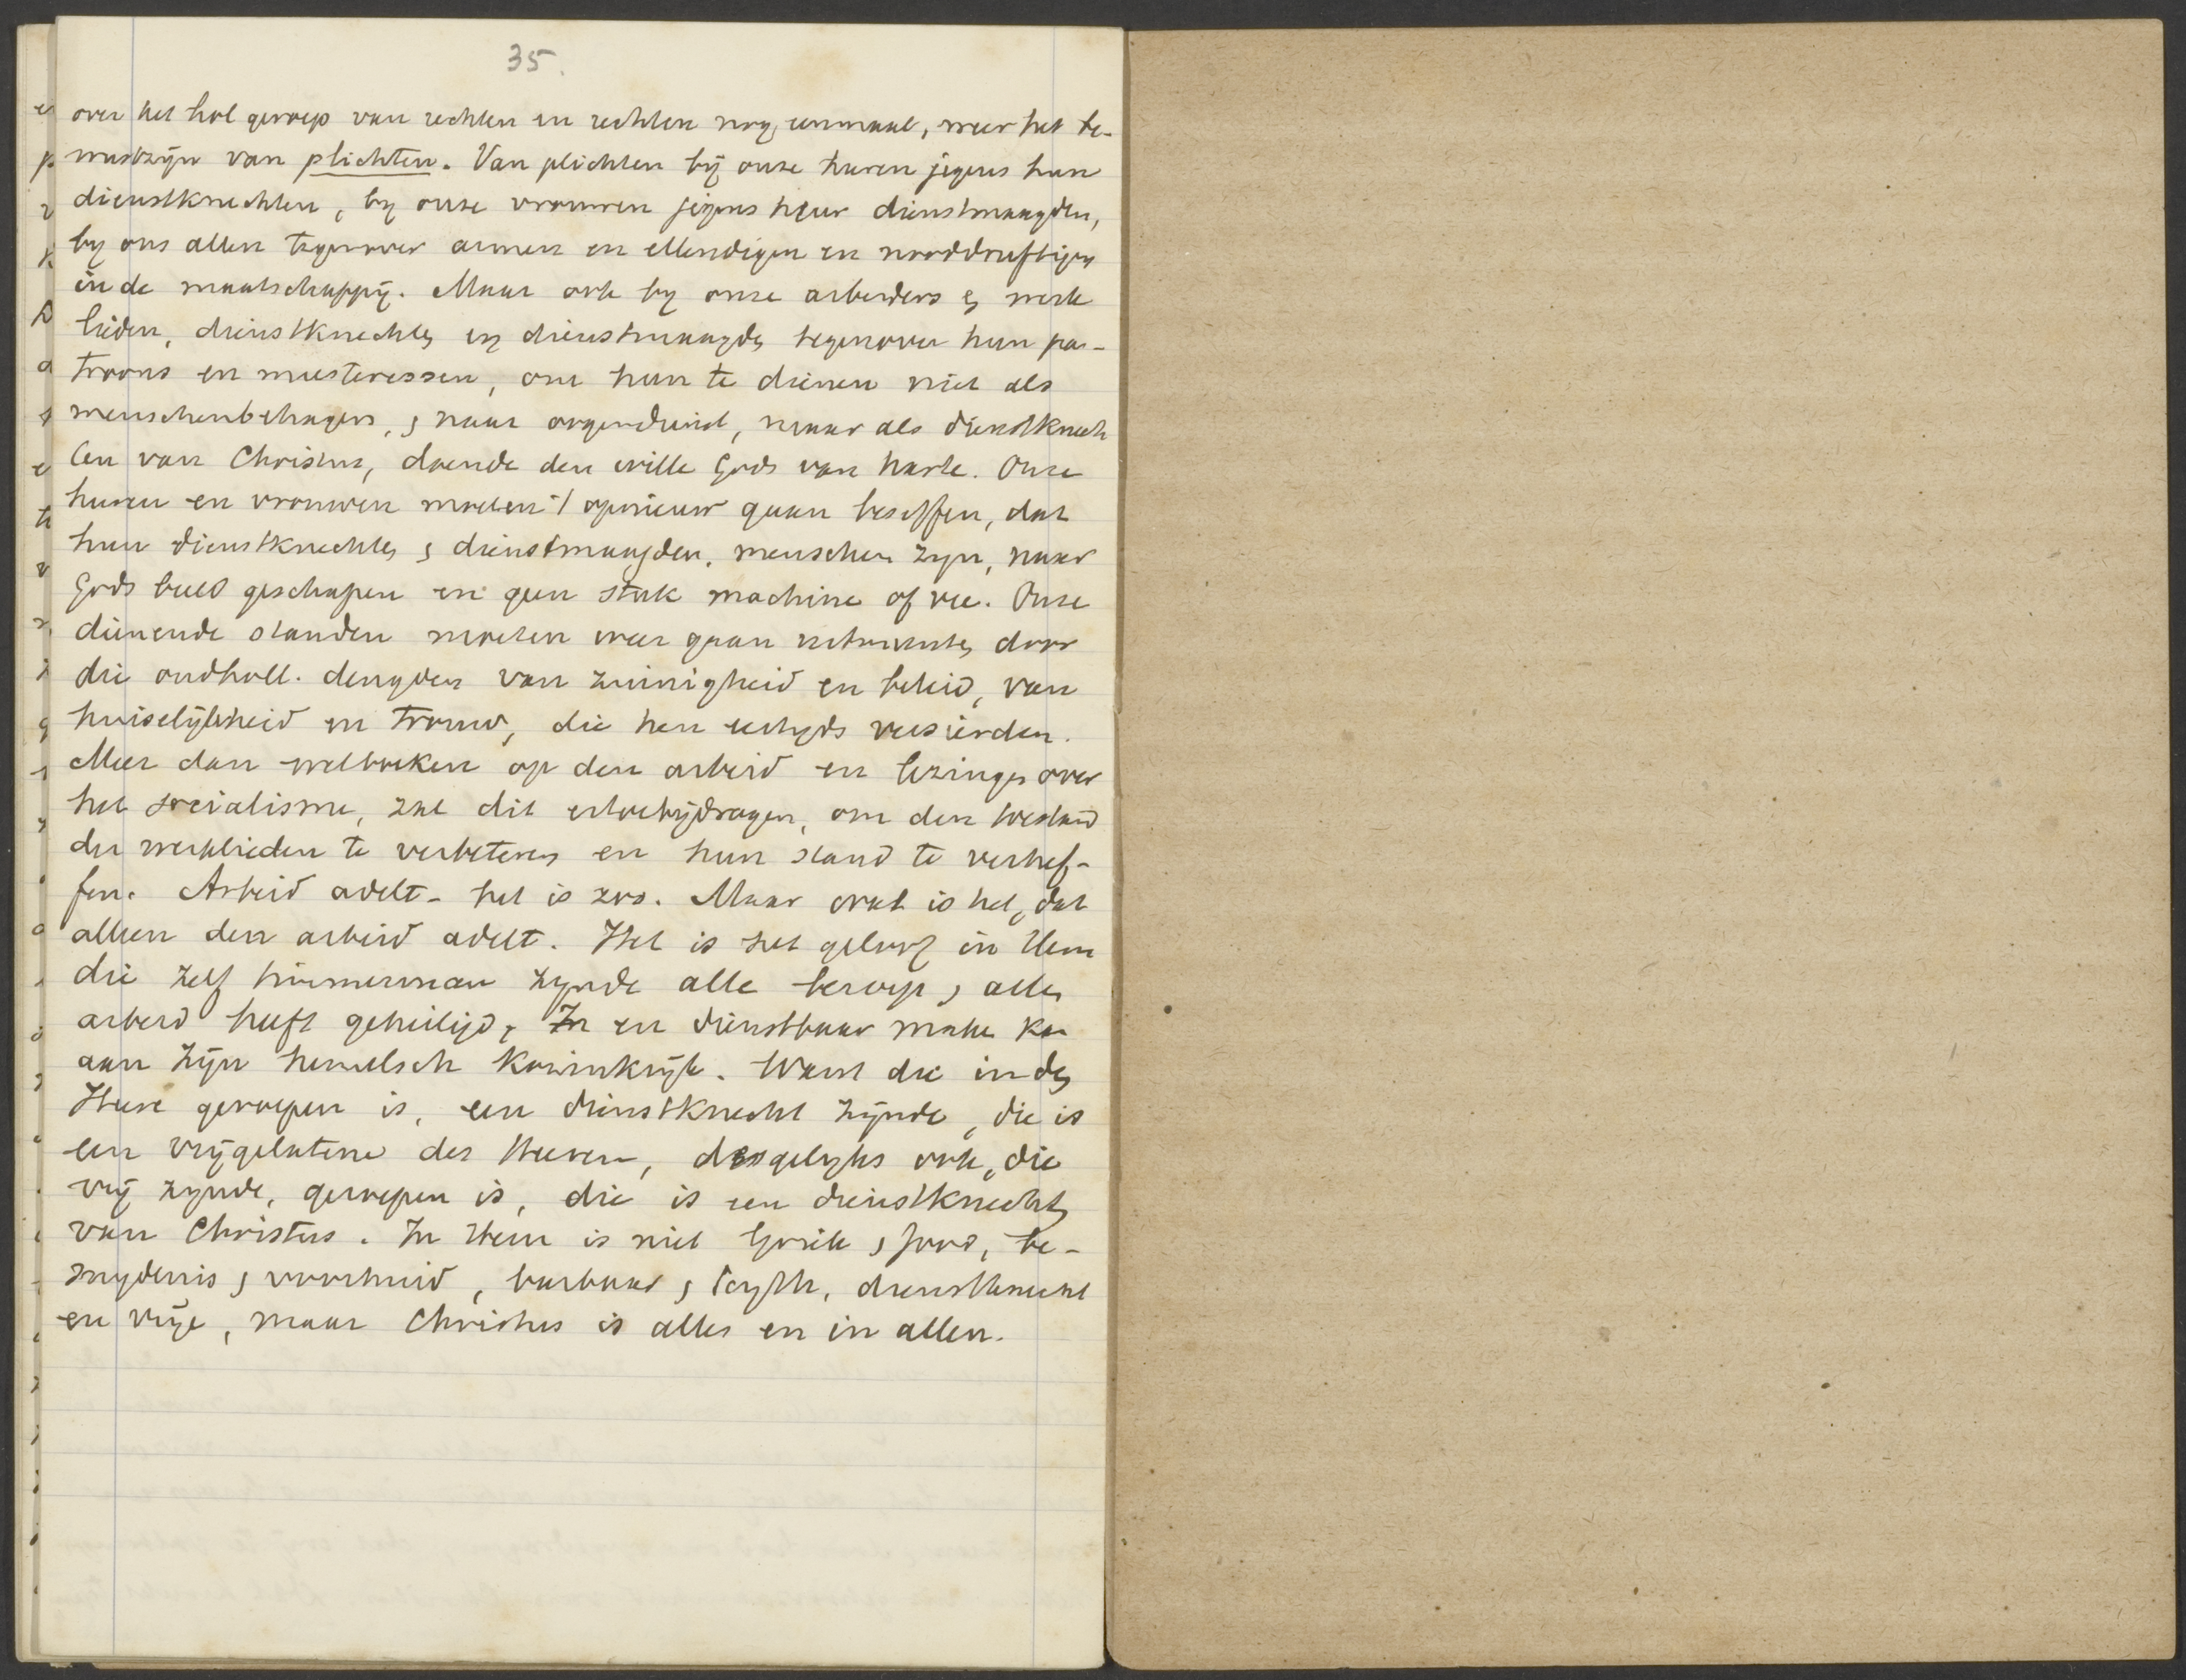 35.
over het hol geroep van rechten en rechten nog eenmaal, weer het be-
wustzijn van plichten. Van plichten bij onze heeren jegens hun
dienstknechten, by onze vrouwen jegens heur dienstmaagden,
by ons allen tegenover armen en ellendigen en nooddruftigen
in de maatschappij. Maar ook by onze arbeiders en werk
lieden, dienstknechten en dienstmaagden tegenover hun pa-
troons en meesteressen, om hun te dienen niet als
menschenbehagers, en naar oogendienst, maar als dienstknech
ten van Christus, doende den wille Gods van harte. Onze
heeren en vrouwen moeten 't opnieuw gaan beseffen, dat
hun dienstknechten en dienstmaagden, menschen zyn, naar
Gods beeld geschapen en geen stuk machine of vee. Onze
dienende standen moeten weer gaan uitmunten door
die oudholl. deugden van zuinigheid en beleid, van
huiselijkheid en trouw, die hen eertyds versierden.
Meer dan wetboeken op den arbeid en lezingen over
het socialisme, zal dit ertoe bijdragen, om den toestand
der werklieden te verbeteren en hun stand te verhef-
fen. Arbeid adelt - het is zoo. Maar wat is het, dat
alleen den arbeid adelt. Het is het geloof in Hem
die zelf timmerman zynde alle beroep en allen
arbeid heeft geheiligd, en dienstbaar maken kan
aan zijn hemelsch koninkrijk. Want die in den
Heere geroepen is, een dienstknecht zijnde, die is
een vrijgelatene des Heeren, desgelyks ook, die
vrij zynde, geroepen is, die is een dienstknecht
van Christus. In Hem is niet Griek en Jood, be-
snydenis en voorhuid, barbaar en Scyth, dienstknecht
en vrije, maar Christus is alles en in allen.